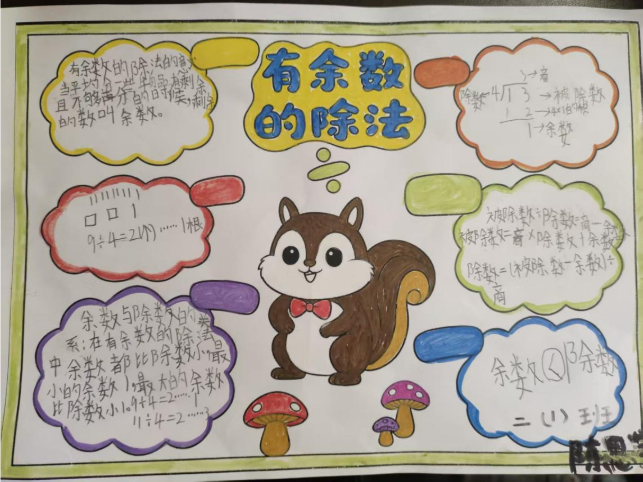 有余数
的除法
有余数的除法的意
当平均分一些
且不够再分的时候,剩余
的数叫余数。
3→商
除数←4√13→被除数
12
1→余数
9÷4=2(个)……1根
被除数÷除数=商……余数
被除数=商×除数+余数
除数=(被除数-余数)÷
商
余数与除数的
系:在有余数的除法
中余数都比除数小。最
小的余数1。最大的余数
比除数小1。9÷4=2……1
11÷4=2……3
余数<除数
二(1)班
陈思